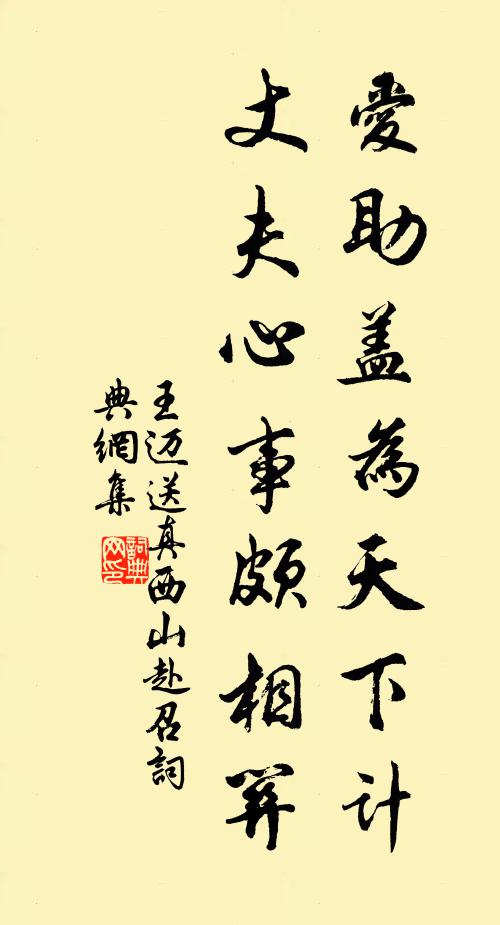 愛助盖為天下計
丈夫心事頗相關
王迈送真西山赴召詞
典網集
詞典
网印